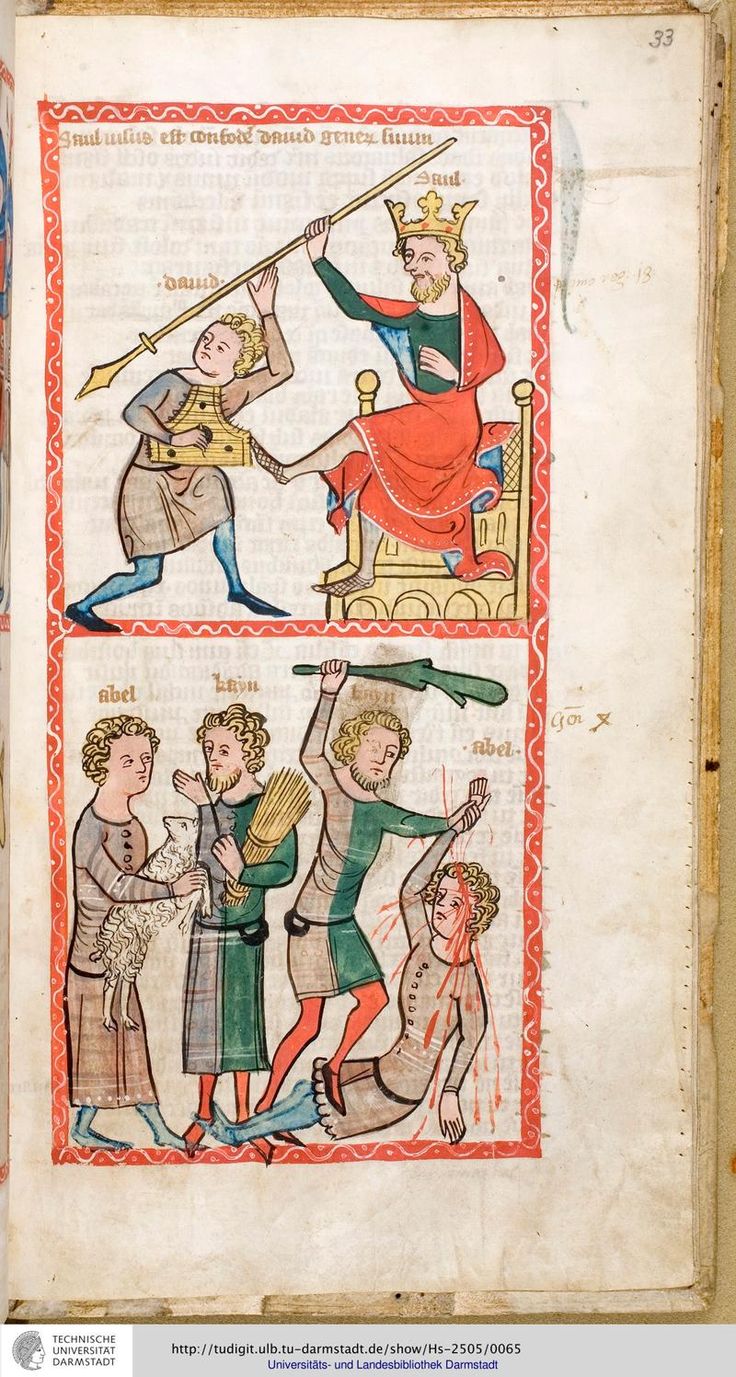 33
Saul nisus est confodē dauid generū suum
Saul·
·dauid·
abel
kayn
kayn
·abel·
TECHNISCHE
UNIVERSITÄT
DARMSTADT
http://tudigit.ulb.tu-darmstadt.de/show/Hs-2505/0065
Universitäts- und Landesbibliothek Darmstadt